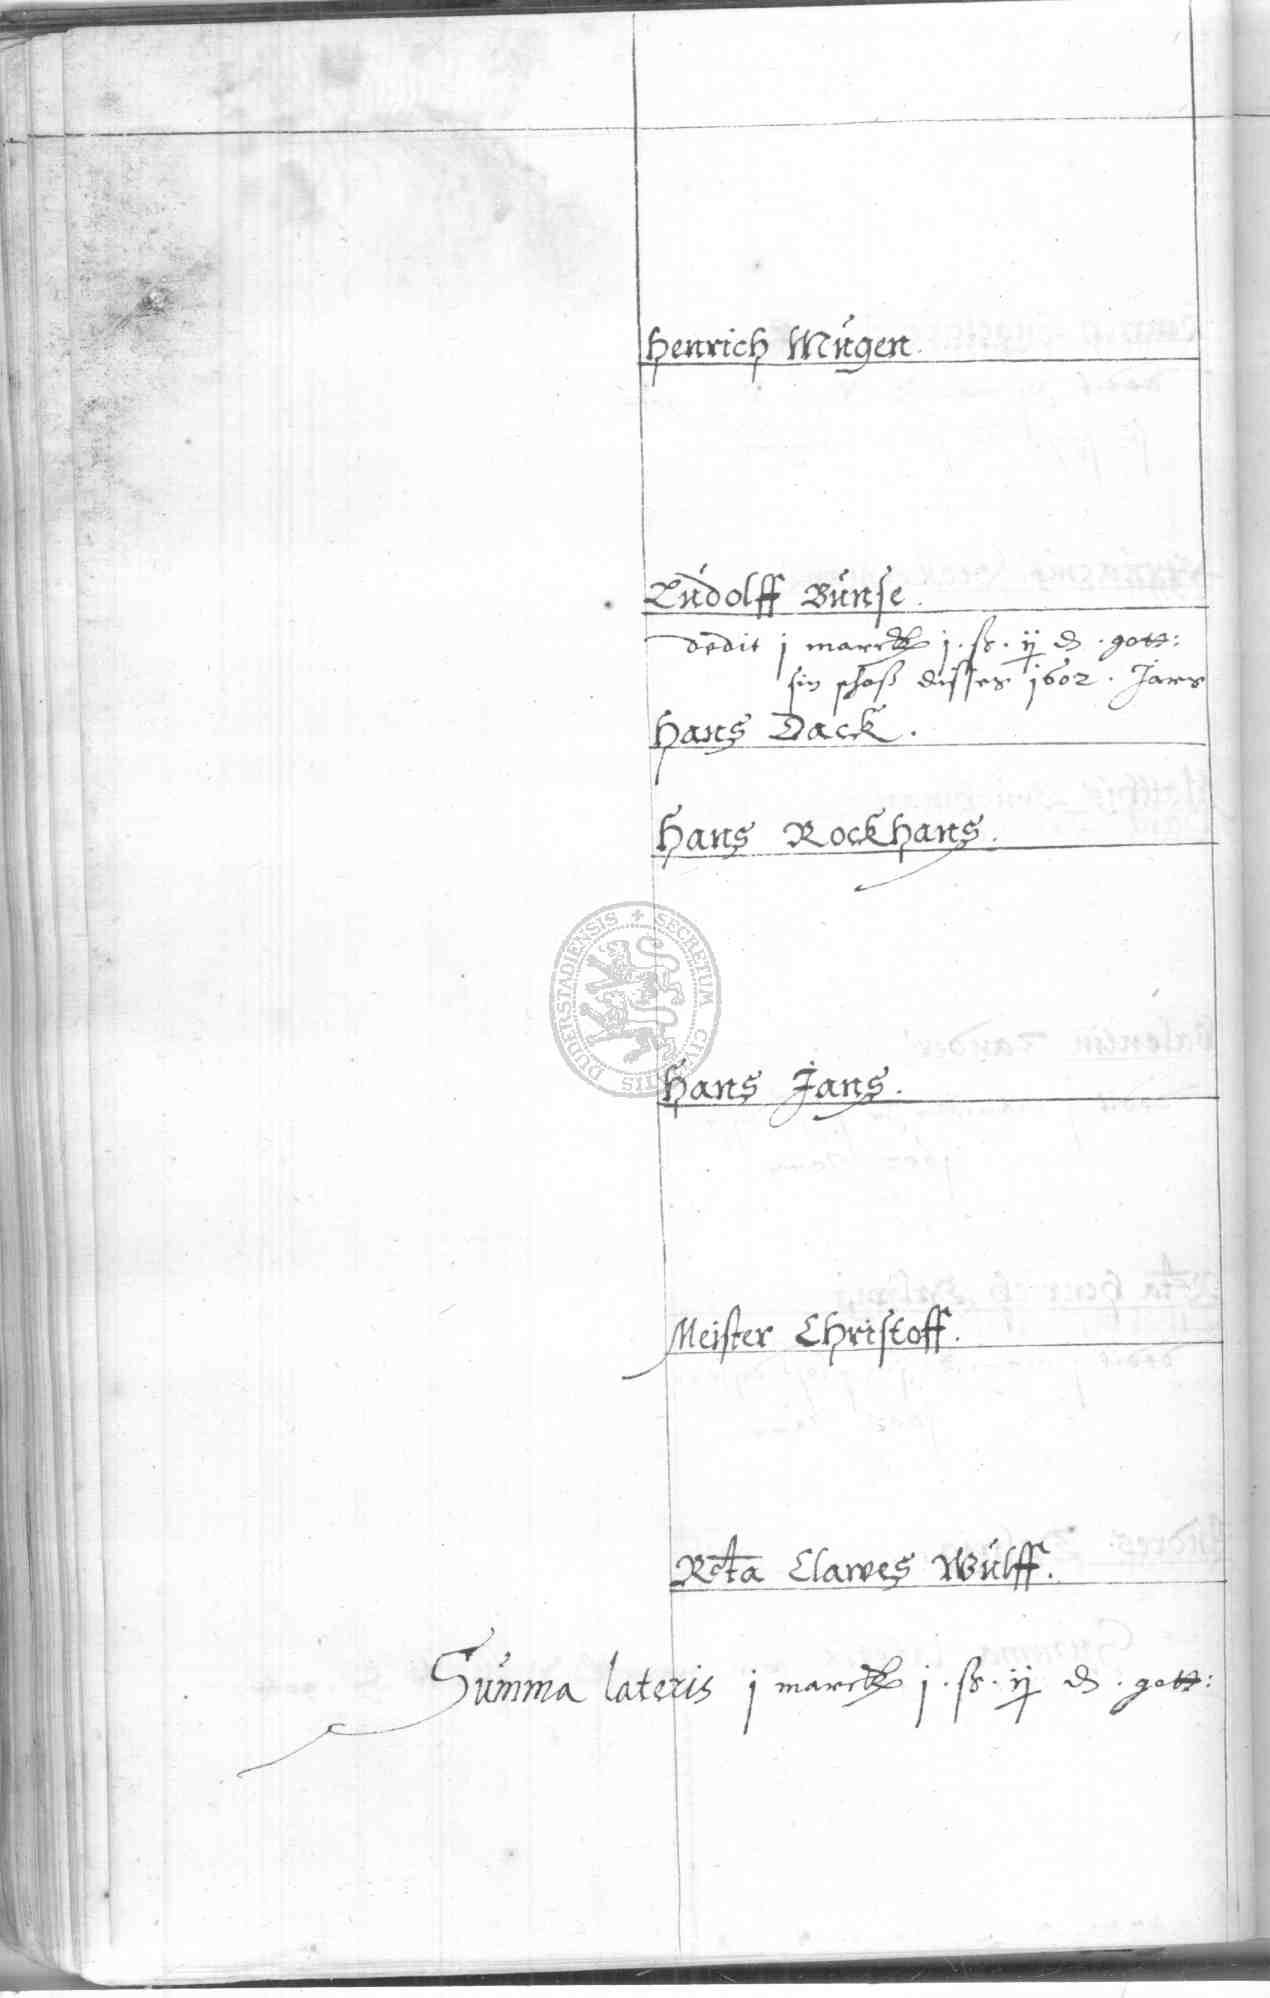 Henrich Mügen.
Rudolff Bünse.
dedit j marck j. ß. ij d. gott:
sin schoß disses 1602. Jars
Hans Dack.
Hans Rockhans.
SECRETUM CIVITATIS DUDERSTADIENSIS
Hans Jans.
Meister Christoff.
Rcta Clawes Wulff.
Summa lateris j marck j. ß. ij d. gott: